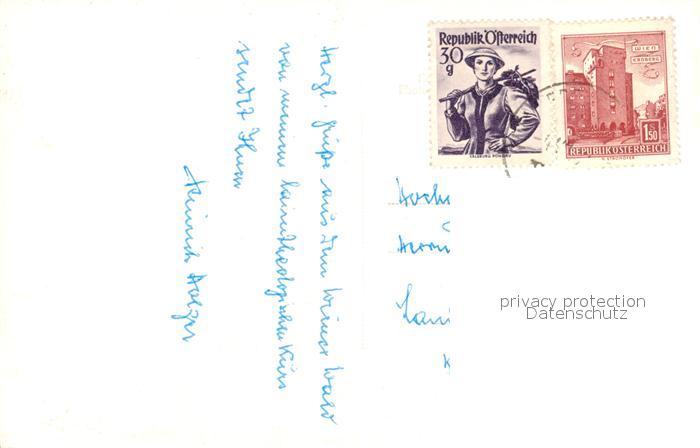 Republik Österreich
30
g
SALZBURG PONGAU
WIEN
ERDBERG
1.50
REPUBLIK ÖSTERREICH
Herzl. Grüße aus dem Wiener Wald
von meinem laientheologischen Kurs
sendet Ihnen
Heinrich Holzer
Hoch
Herrn
privacy protection
Datenschutz